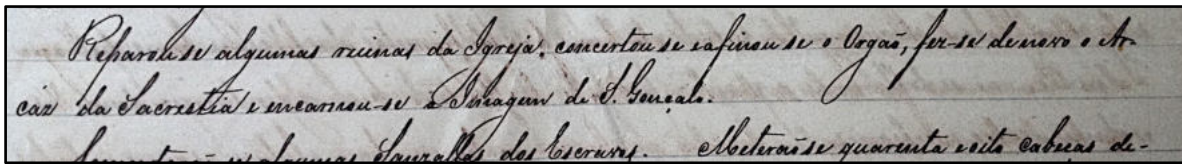 Reparou se algumas ruinas da Igreja, concertou se e afinou se o Orgaõ, fez-se de novo o Ar-
caz da Sacrestia e encarnou-se a Imagem de S. Gonçalo.
algumas Sanzallas dos Escravos. Meteraõ se quarenta e oito cabeças de-